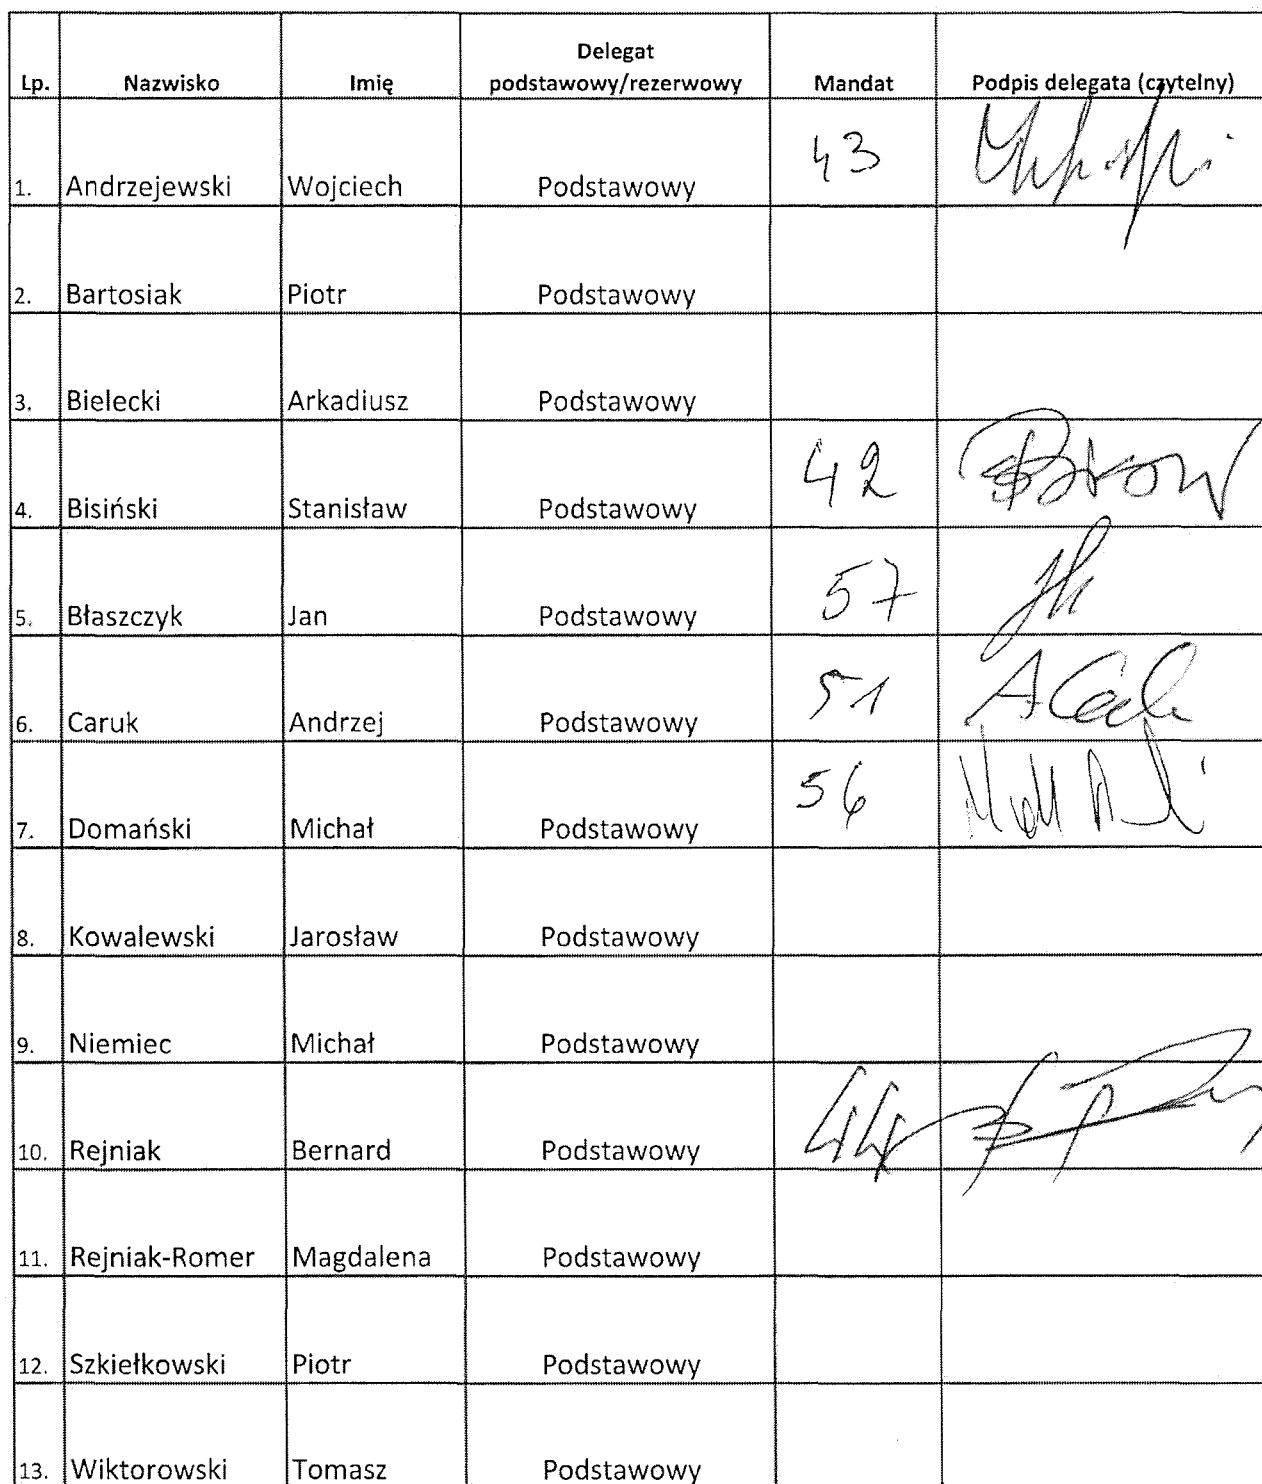 Lp. Nazwisko Imię Delegat podstawowy/rezerwowy Mandat Podpis delegata (czytelny)
1. Andrzejewski Wojciech Podstawowy 43
2. Bartosiak Piotr Podstawowy
3. Bielecki Arkadiusz Podstawowy
4. Bisiński Stanisław Podstawowy 42
5. Błaszczyk Jan Podstawowy 57
6. Caruk Andrzej Podstawowy 51
7. Domański Michał Podstawowy 56
8. Kowalewski Jarosław Podstawowy
9. Niemiec Michał Podstawowy
10. Rejniak Bernard Podstawowy 44
11. Rejniak-Romer Magdalena Podstawowy
12. Szkiełkowski Piotr Podstawowy
13. Wiktorowski Tomasz Podstawowy